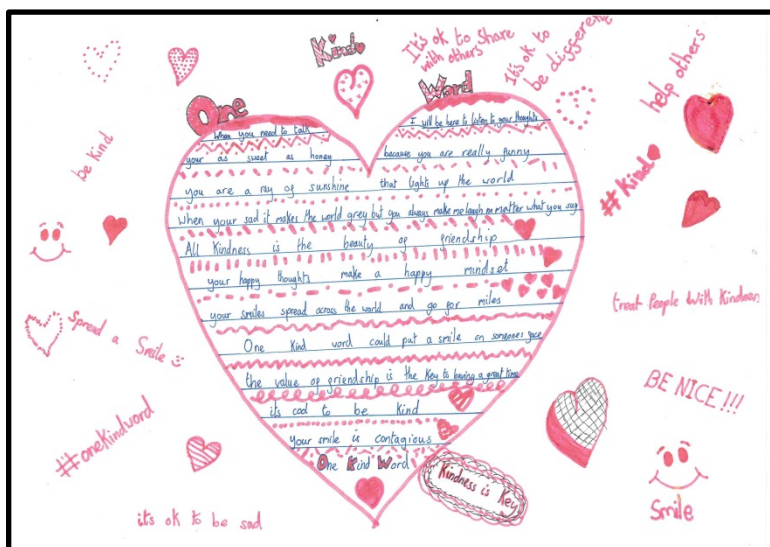 One Kind Word
It's ok to share
with others
It's ok to
be different
help others
be kind
#kind
When you need to talk I will be here to listen to your thoughts
your as sweet as honey because you are really funny
you are a ray of sunshine that lights up the world
When your sad it makes the world grey but you always make me laugh no matter what you say
All Kindness is the beauty of friendship
your happy thoughts make a happy mindset
your smiles spread across the world and go for miles
One Kind word could put a smile on someones face
the value of friendship is the key to having a great time
its cool to be kind
your smile is contagious
One Kind Word
Spread a
Smile
treat People With Kindness
#oneKindword
BE NICE!!!
Kindness is Key
Smile
its ok to be sad